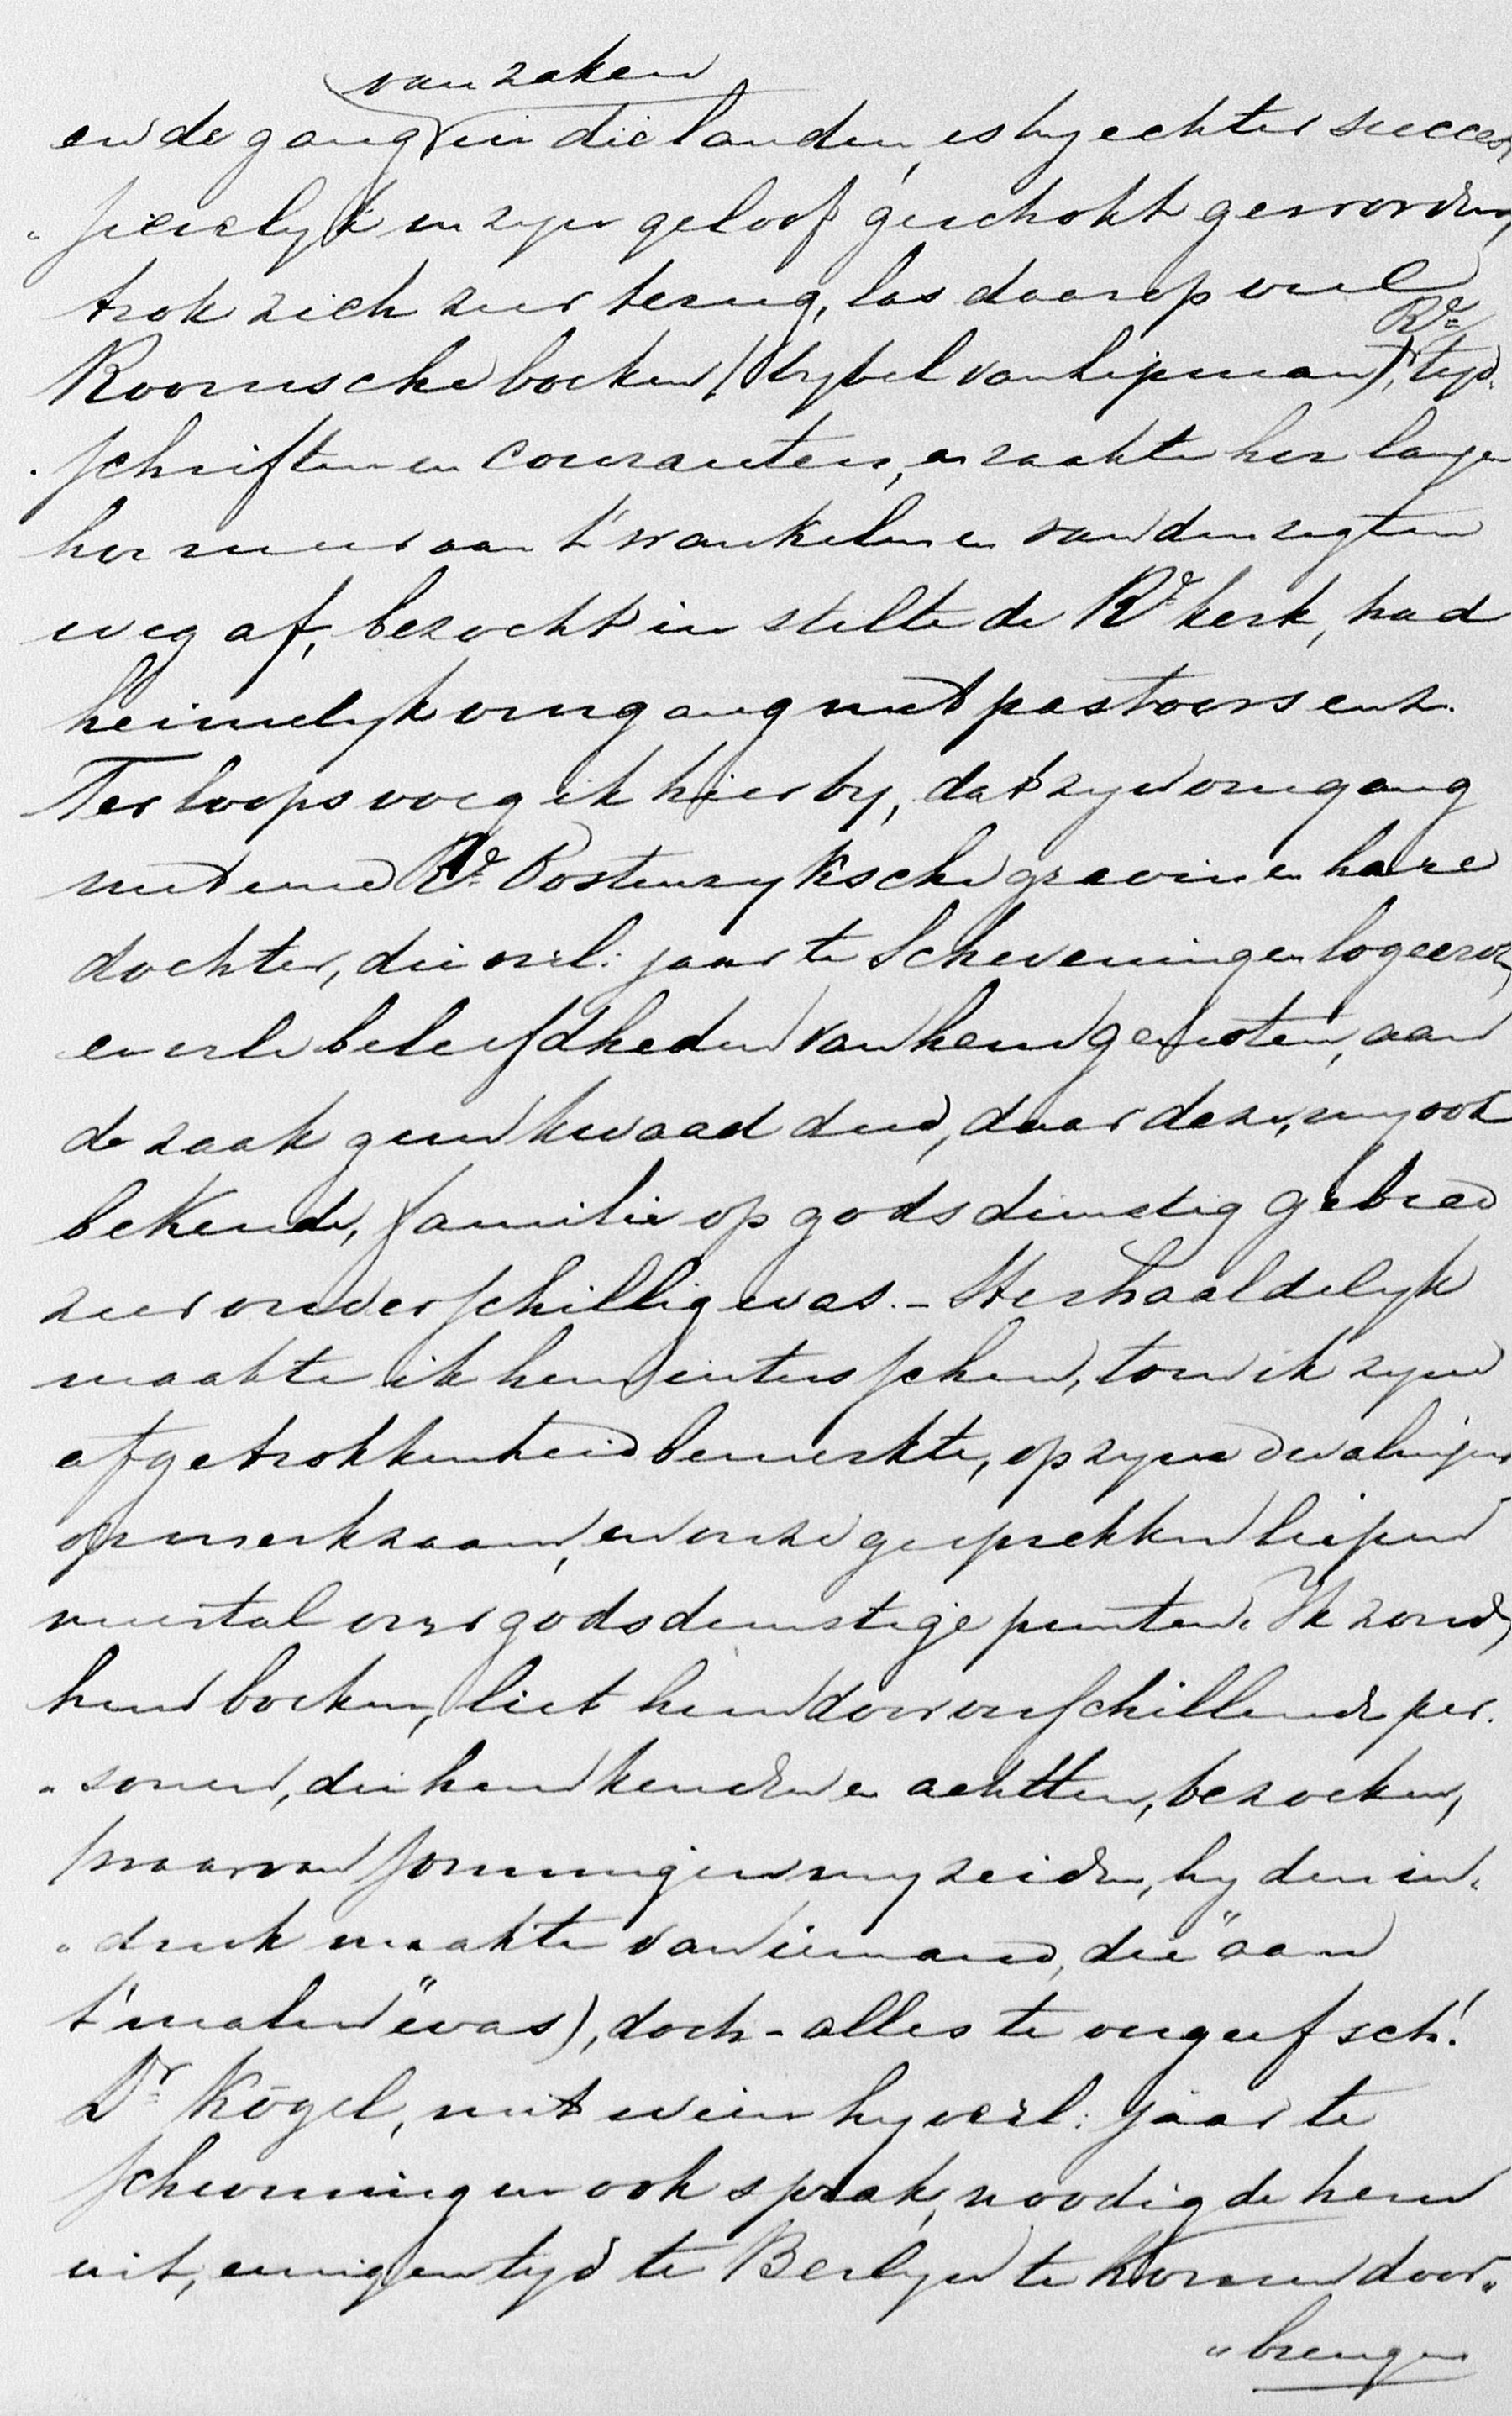 van zaken
en de gang in die landen, is hy echter succes
„sievelyk in zyn geloof geschokt geworden,
trok zich zeer terug, las daarop veel
Rsche
Roomsche boeken (bybel van Lipman), tyd„
„schriften en couranten, en raakte hoe langer
hoe meer aan 't wankelen en van den regten
weg af, bezocht in stilte de Rsche kerk, had
heimelyk omgang met pastoors enz.
Terloops voeg ik hier by, dat zyn omgang
met eene Rsche Oostenryksche gravin en hare
dochter, die verl: jaar te Scheveningen logeerden,
en vele beleefdheden van hem genoten, aan
de zaak geen kwaad deed, daar deze, my ook
bekende, familie op godsdienstig gebied
zeer onverschillig was. – Herhaaldelyk
maakte ik hem intusschen, toen ik zyne
afgetrokkenheid bemerkte, op zyne dwalingen
opmerkzaam, en onze gesprekken liepen
meestal over godsdienstige punten. Ik zond
hem boeken, liet hem door verschillende per„
„sonen, die hem kenden en achtten, bezoeken,
(waarvan sommigen my zeiden, hy den in„
„druk maakte van iemand, die "aan
't malen" was), doch – alles te vergeefsch!
Dr Kögel, met wien hy verl: jaar te
Scheveningen ook sprak, noodigde hem
uit, eenigen tyd te Berlyn te komen door„
„brengen